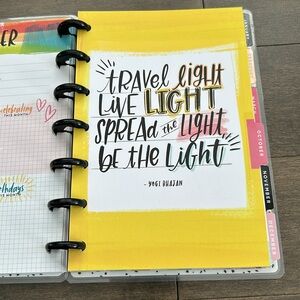 ER
celebrating
THIS MONTH
rthdays
THIS MONTH
travel light
LIVE LIGHT
SPREAD the light
be the Light
- YOGI BHAJAN
OCTOBER
NOVEMBER
DECEMBER